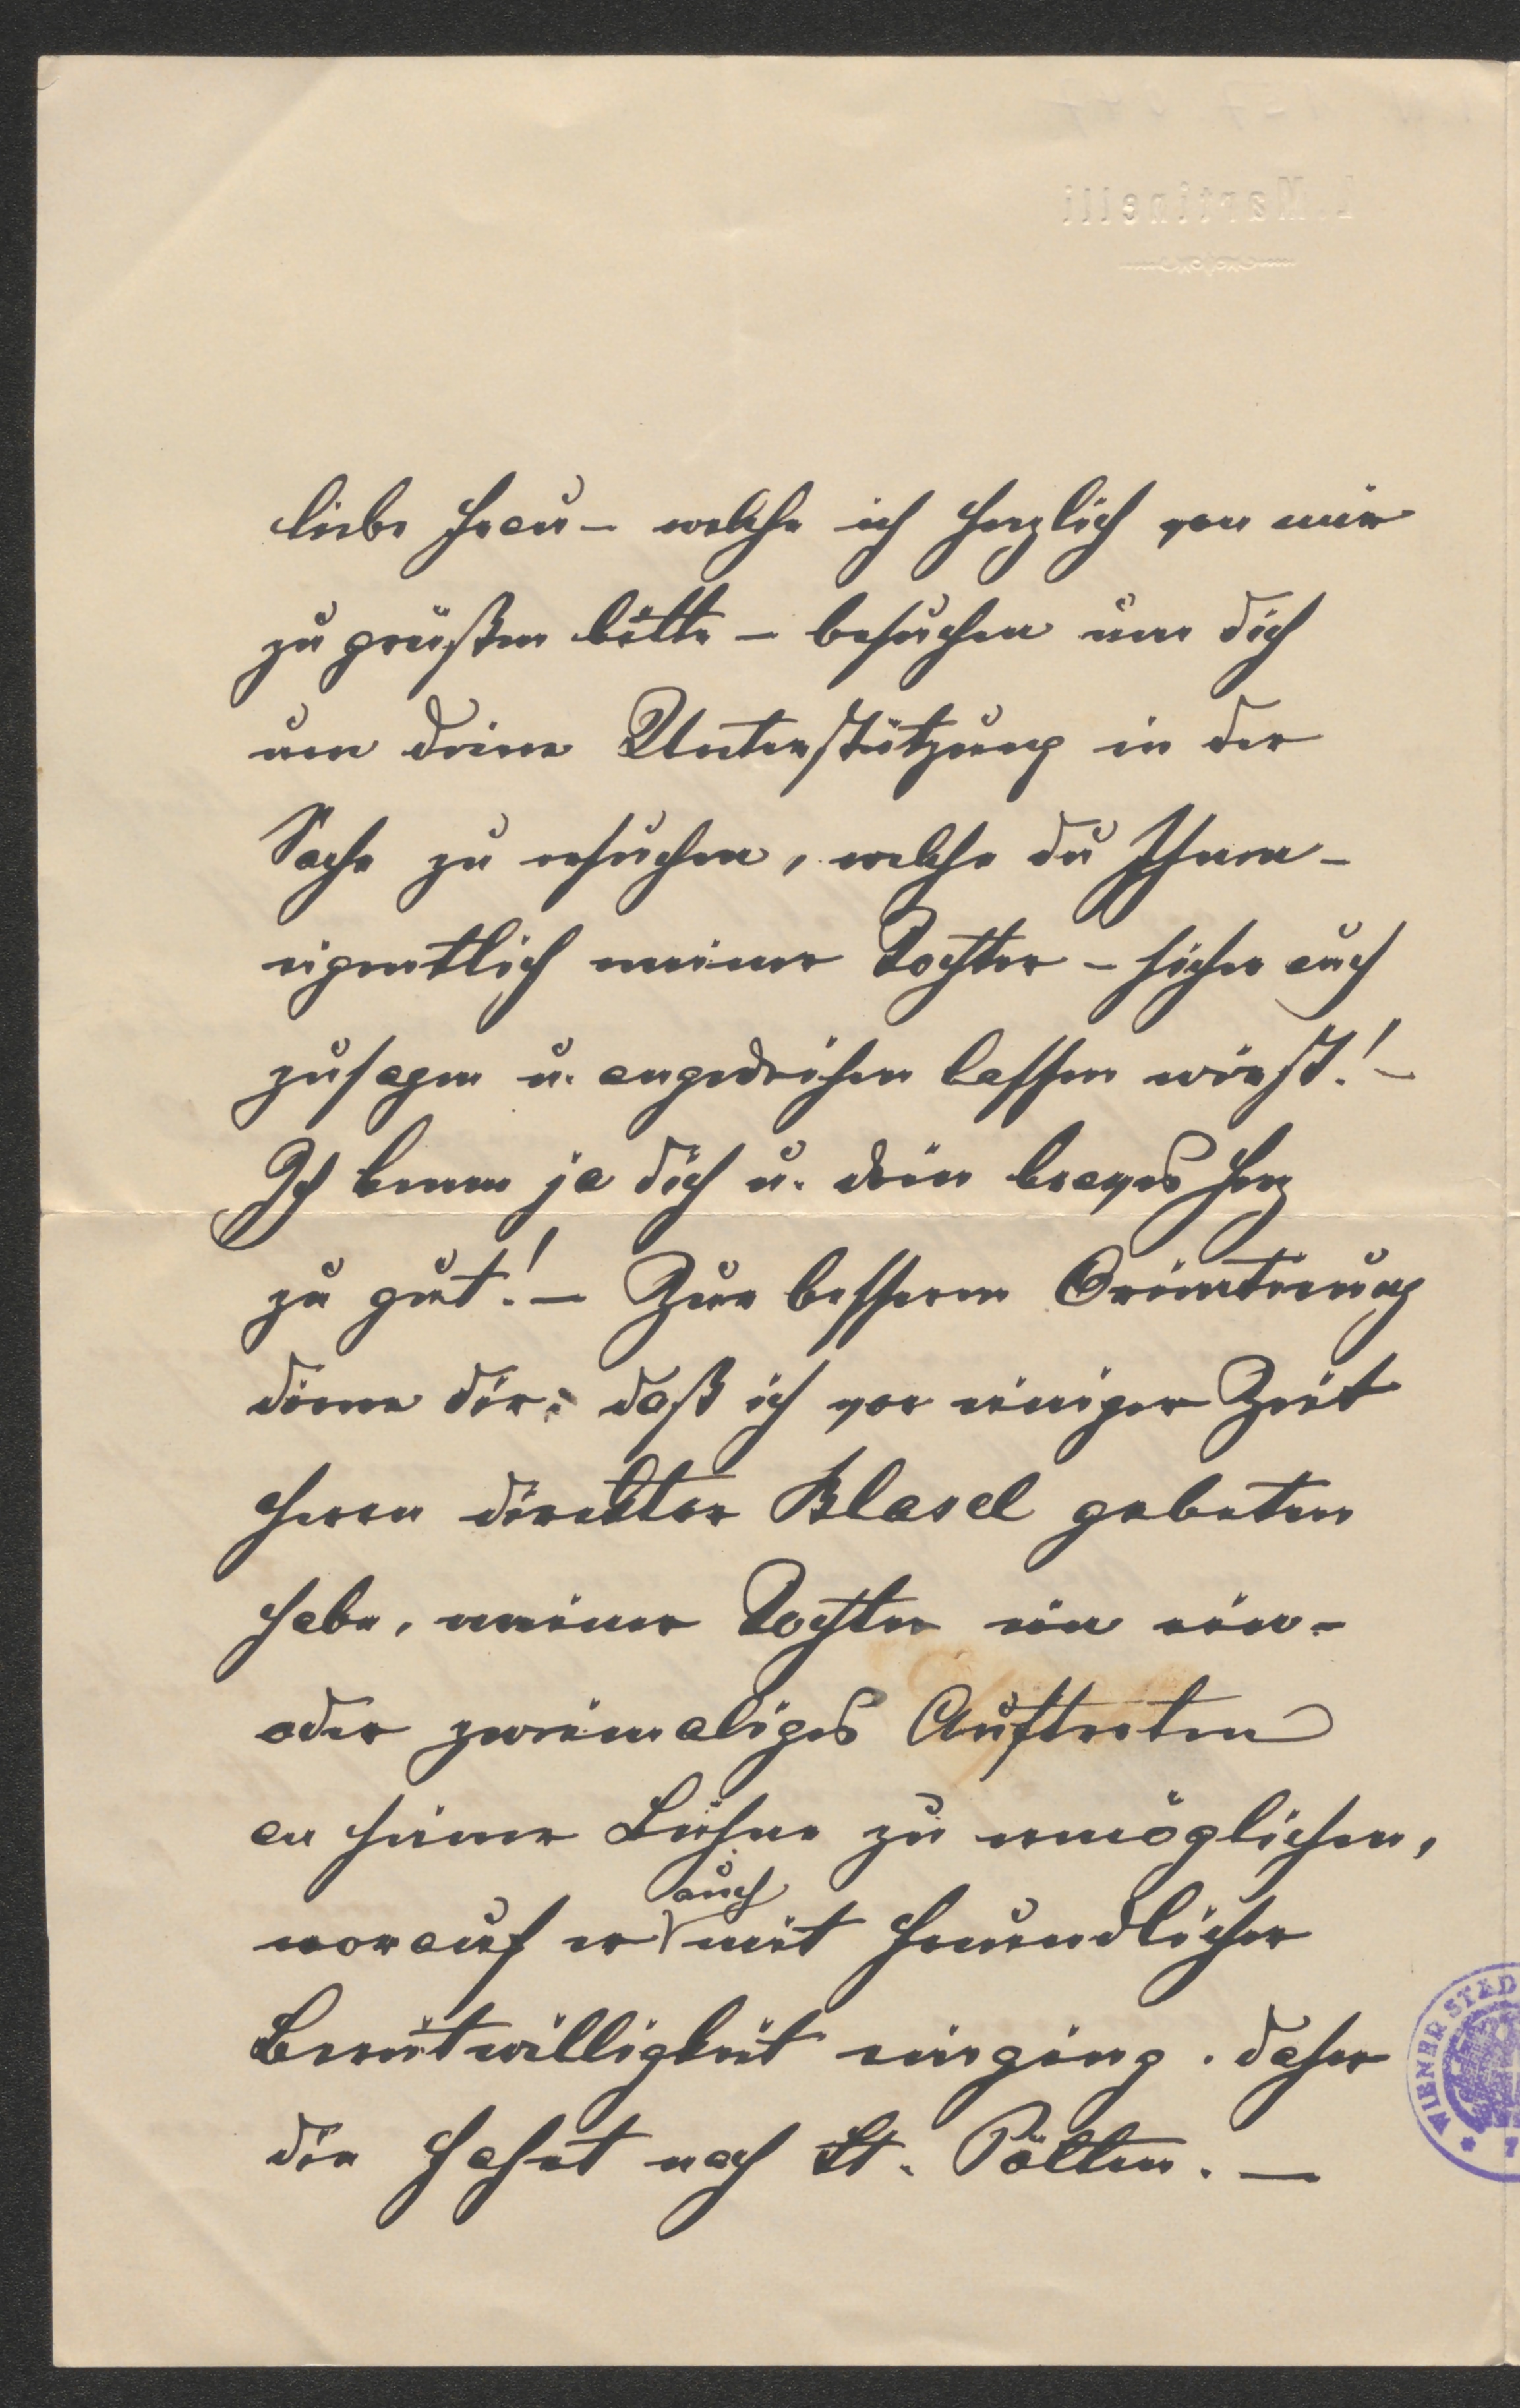 L. Martinelli
liebe Frau – welche ich herzlich von mir
zu grüßen bitte – besuchen um dich
um deine Unterstützung in der
Sache zu ersuchen, welche du Ihnen –
eigentlich meiner Tochter – sicher auch
zusagen u. angedeihen lassen wirst! –
Ich kenne ja dich u. dein braves Herz
zu gut! – Zur besseren Orientirung
diene dir: daß ich vor einiger Zeit
Herrn direktor Blasel gebeten
habe, meiner Tochter ein ein-
oder zweimaliges Auftreten
an seiner Bühne zu ermöglichen,
auch
worauf er mit freundlicher
Bereitwilligkeit einging. daher
die Fahrt nach St. Pölten. –
WIENER STÄD